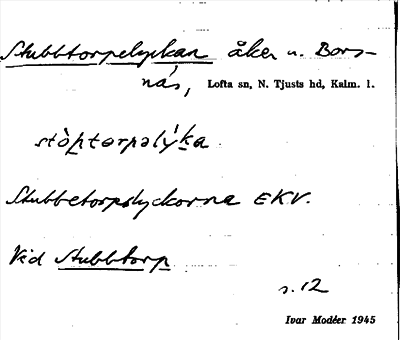 Stubbtorpelyckan åker u. Bors-
näs, Lofta sn, N. Tjusts hd, Kalm. l.
stòptərpəlýka.
Stubbetorpslyckorna EKV.
Vid Stubbtorp
s. 12
Ivar Modéer 1945